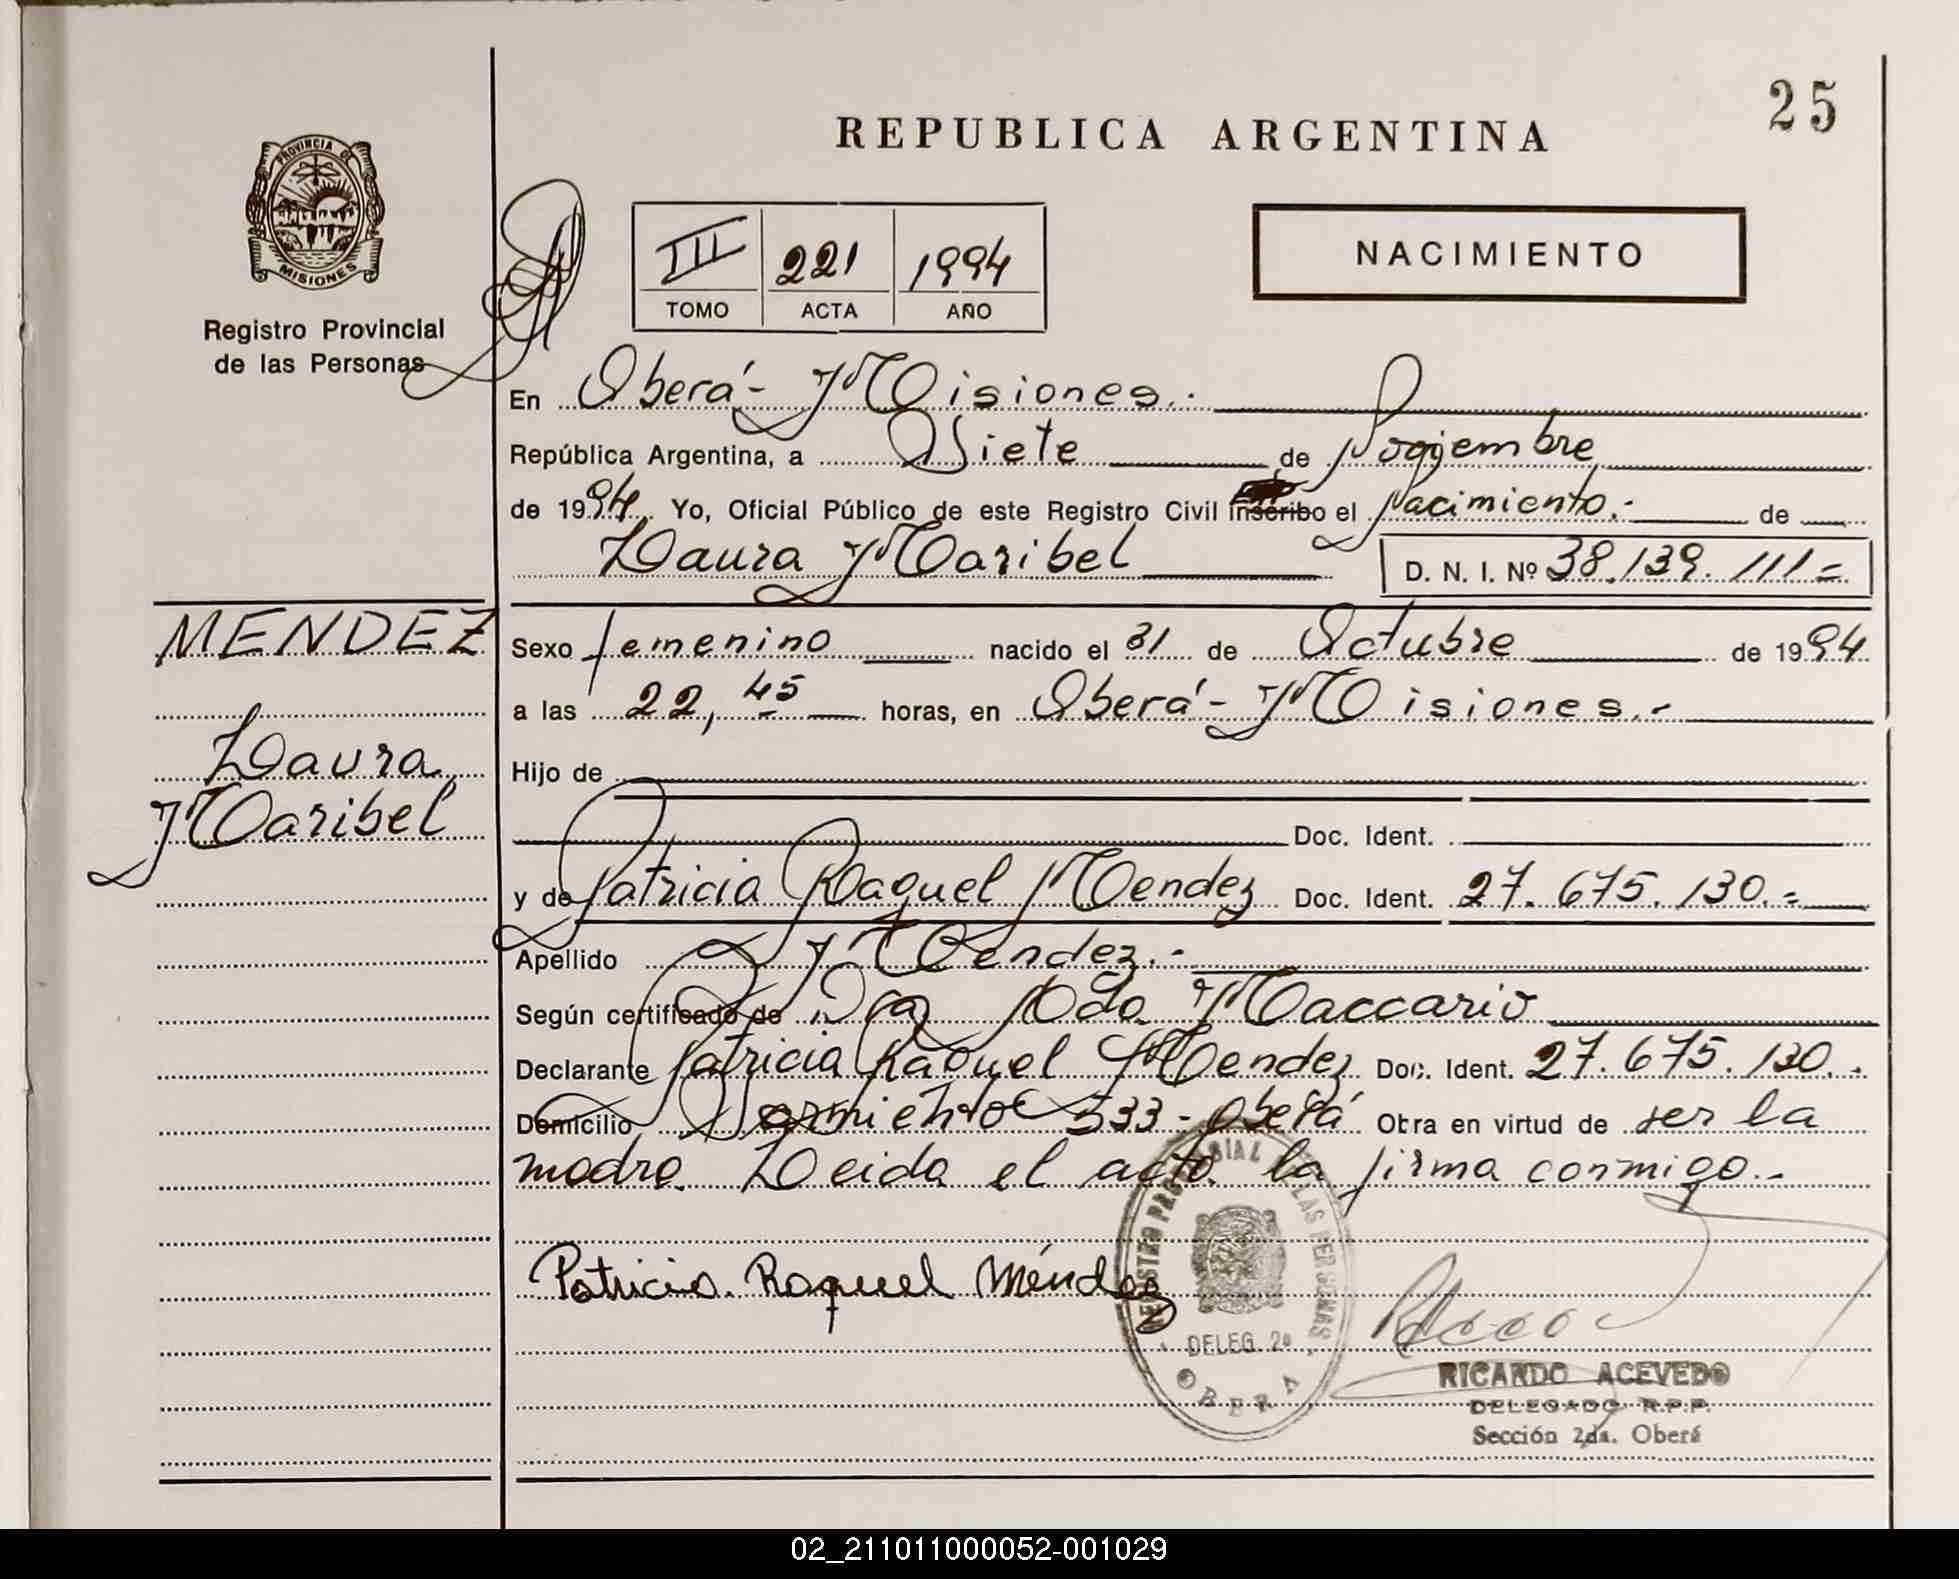 25
REPUBLICA ARGENTINA
PROVINCIA DE
MISIONES
Registro Provincial
de las Personas
III 221 1994
TOMO ACTA AÑO
NACIMIENTO
En Oberá - Misiones.-
República Argentina, a Siete de Noviembre
de 1994. Yo, Oficial Público de este Registro Civil Inscribo el Nacimiento.- de
Laura Maribel D. N. I. Nº 38.139.111=
MENDEZ
Laura
Maribel
Sexo femenino nacido el 31 de Octubre de 1994
a las 22,45 horas, en Oberá - Misiones.-
Hijo de
Doc. Ident.
y de Patricia Raquel Mendez Doc. Ident. 27.675.130.=
Apellido Mendez.-
Según certificado de Dra Maccario
Declarante Patricia Raquel Mendez Doc. Ident. 27.675.130.-
Domicilio Sarmiento 533 - Oberá Obra en virtud de ser la
madre. Leida el acta la firma conmigo.-
Patricia Raquel Méndez
REGISTRO PROVINCIAL DE LAS PERSONAS
DELEG. 2a
OBERA
RICARDO ACEVEDO
DELEGADO R.P.P.
Sección 2da. Oberá
02_211011000052-001029